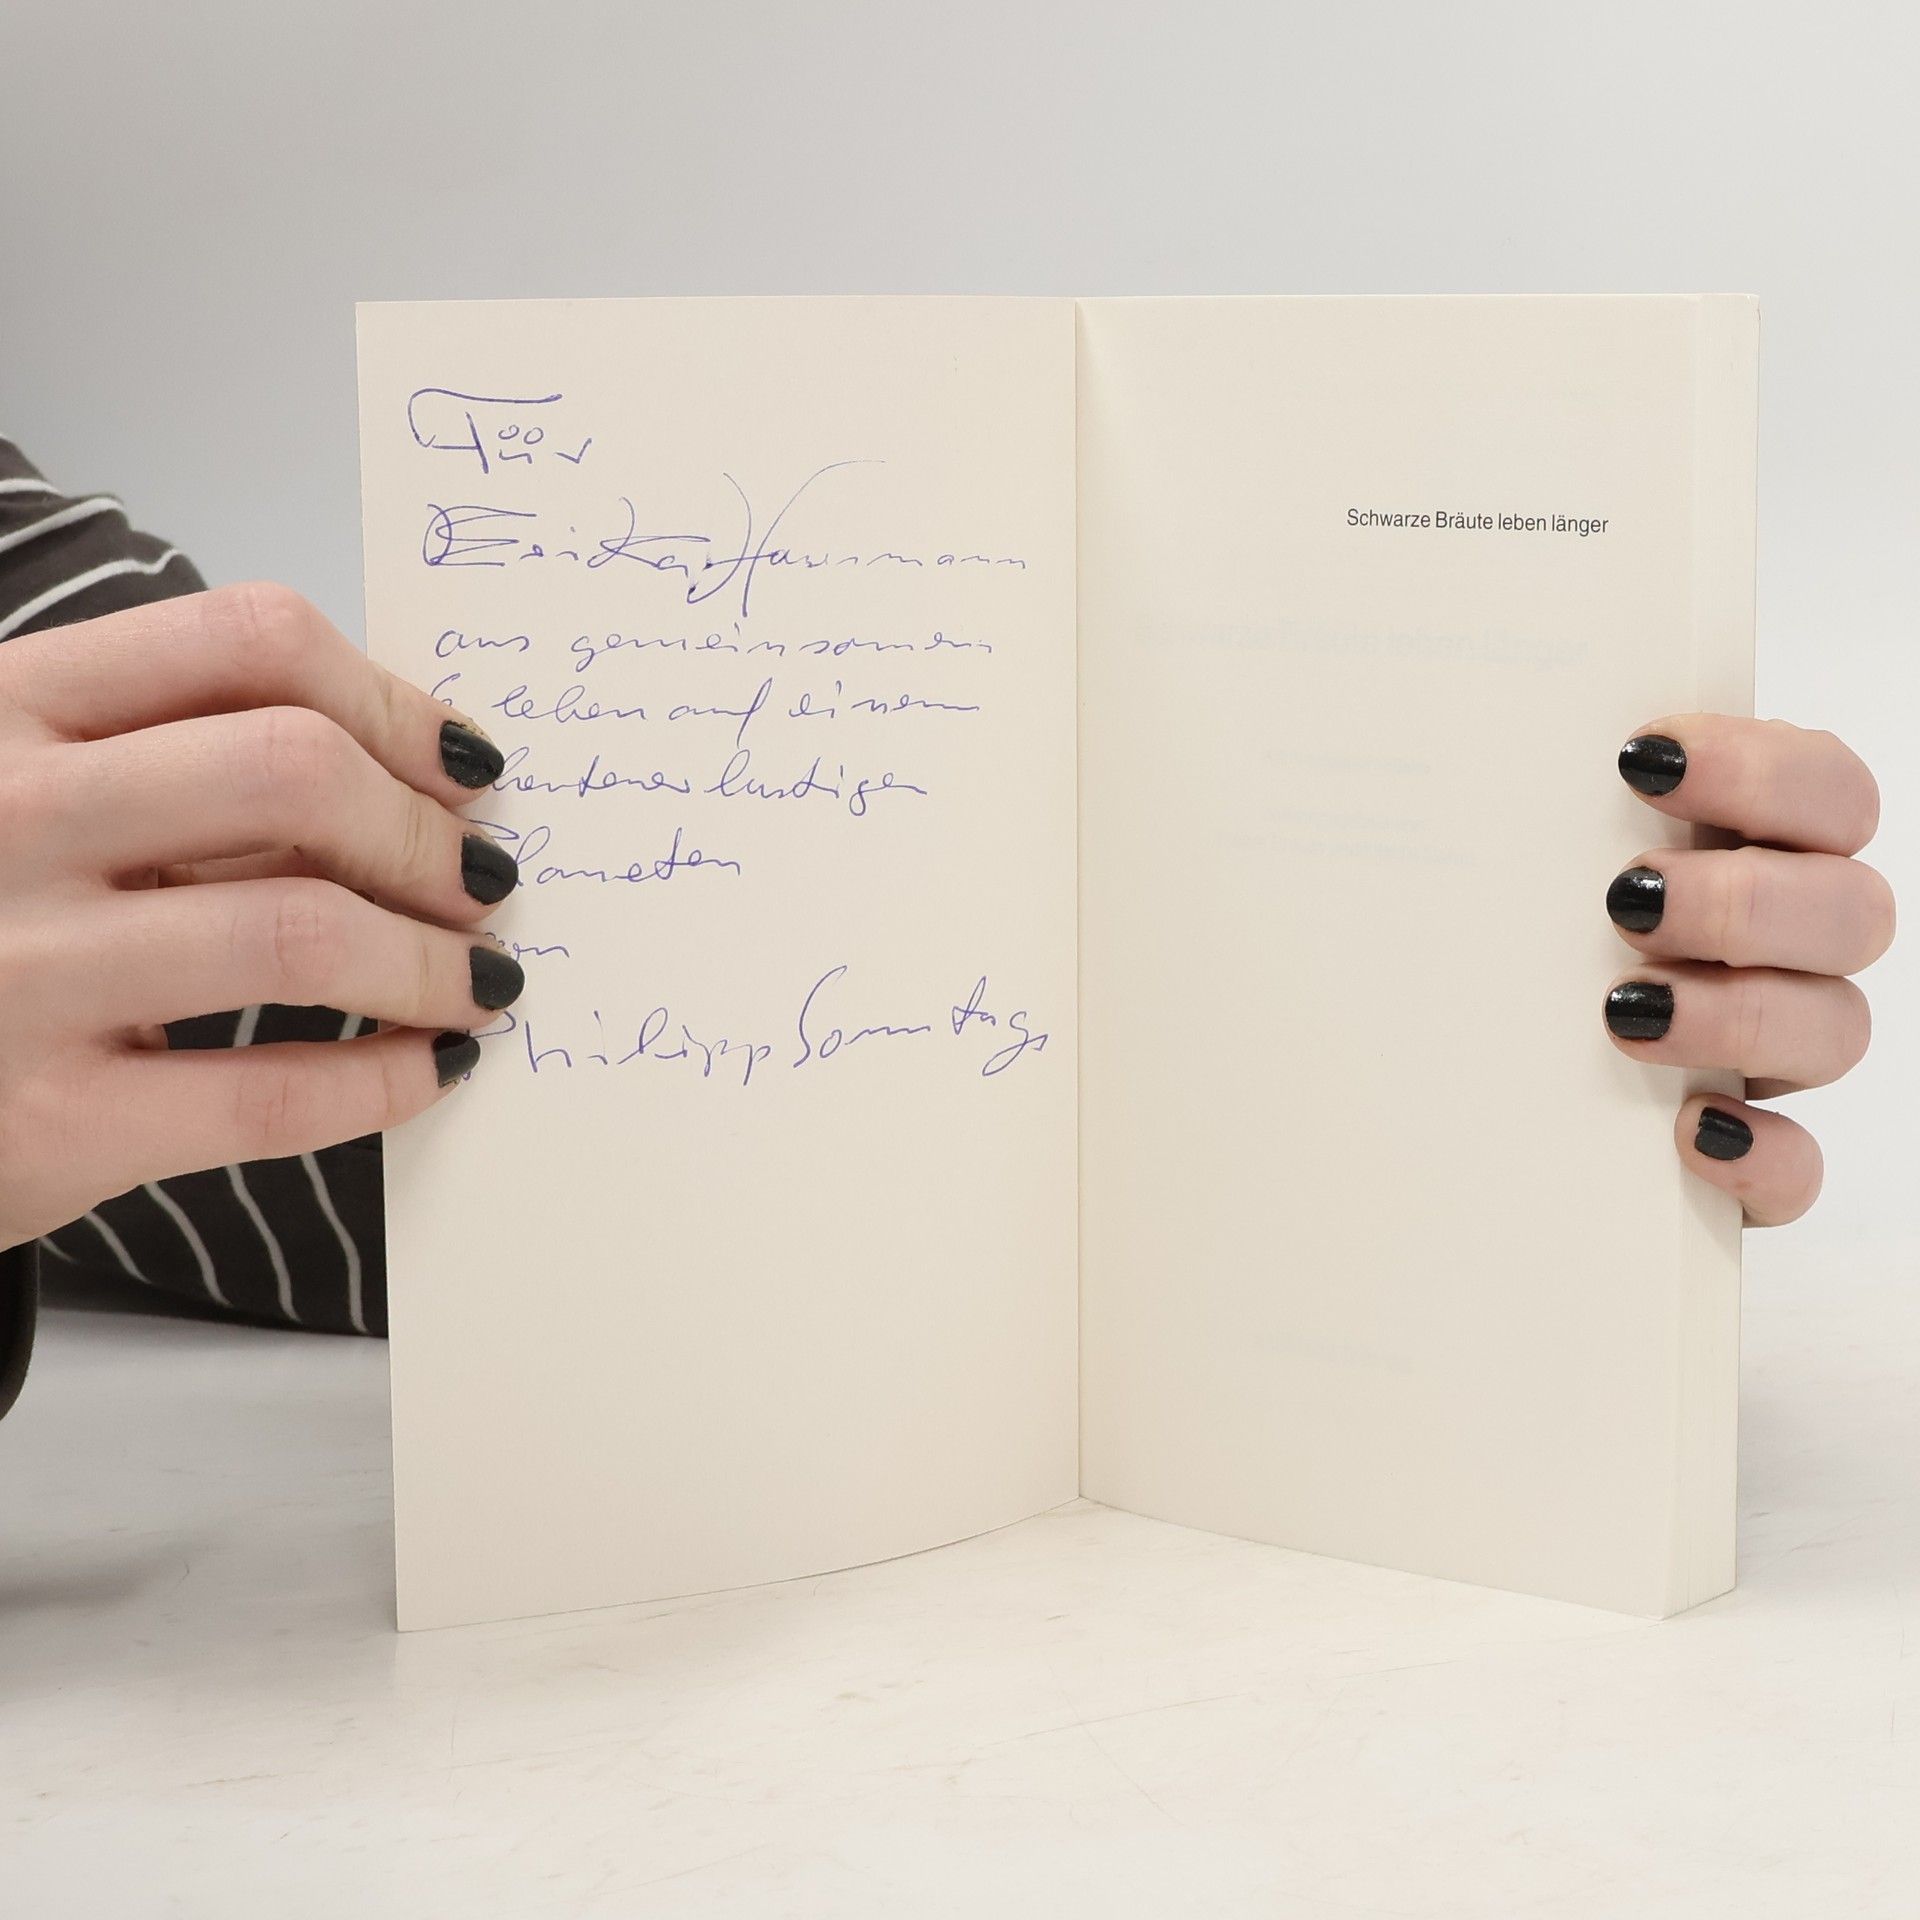 Für
Erika Hausmann
aus gemeinsamem
leben auf einem
lustigen
Planeten
von
Philipp Sonntag
Schwarze Bräute leben länger